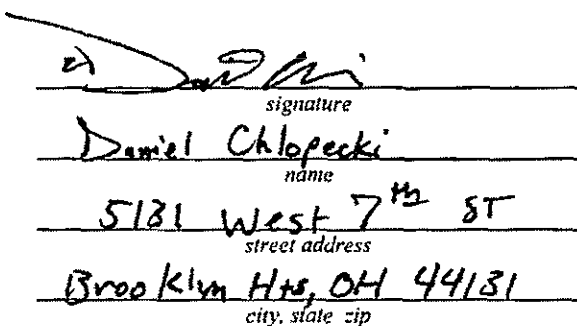 signature
Daniel Chlopecki
name
5131 West 7th ST
street address
Brooklyn Hts, OH 44131
city, state zip